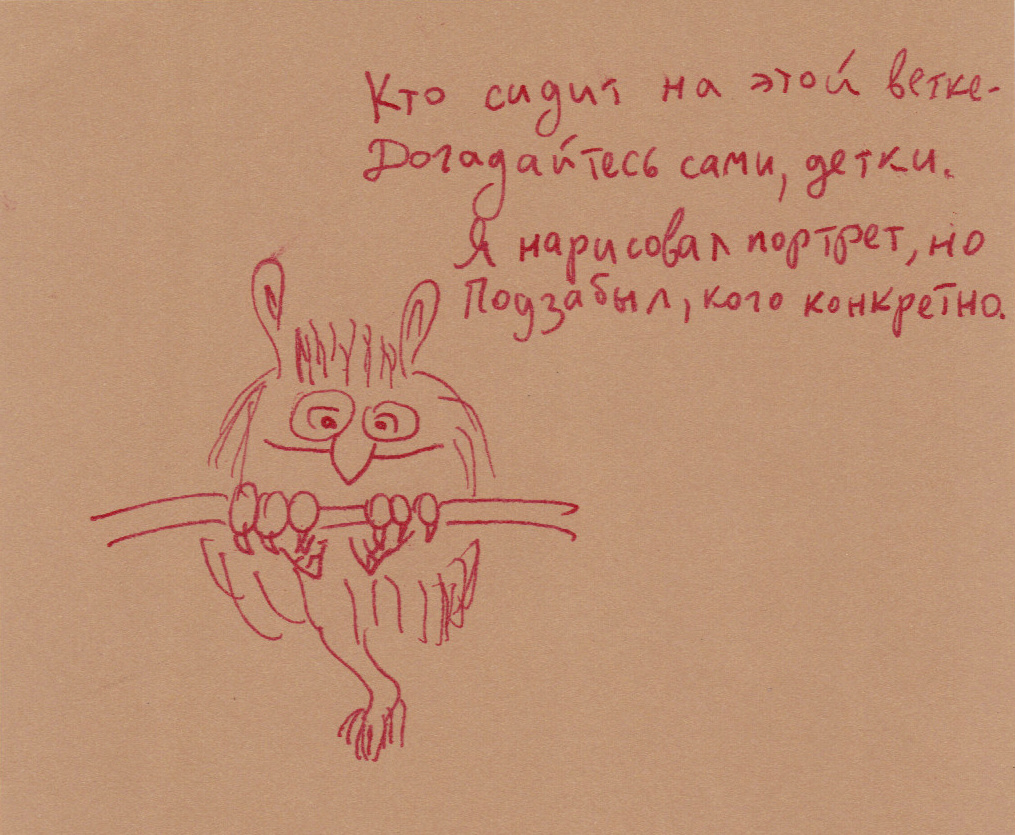 Кто сидит на этой ветке-
Догадайтесь сами, детки.
Я нарисовал портрет, но
Подзабыл, кого конкретно.